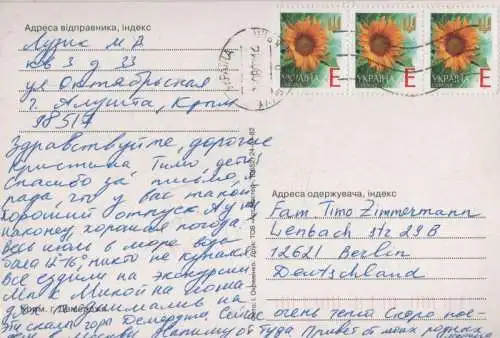 Адреса відправника, індекс
Лузик М А
кв 3 д 33
ул Октябрьская
г. Алушта, Крым
98517
Здравствуйте, дорогие
Кристина Тимо, дети,
Спасибо за письмо, я
рада, что у вас такой
хороший отпуск. А у нас
наконец хорошая погода.
весь июль в море вода
была 12-16, никто не купался
Все ездили на экскурсии
Мы с Микой на лошадях
поднимались на
гора Демерджи, Сейчас очень тепл Скоро пое-
в Москву Напишу оттуда Привет от моих родных
УКРАЇНА
Е
УКРАЇНА
Е
УКРАЇНА
Е
Адреса одержувача, індекс
Fam. Timo Zimmermann
Lenbach str 29B
12621 Berlin
Deutschland